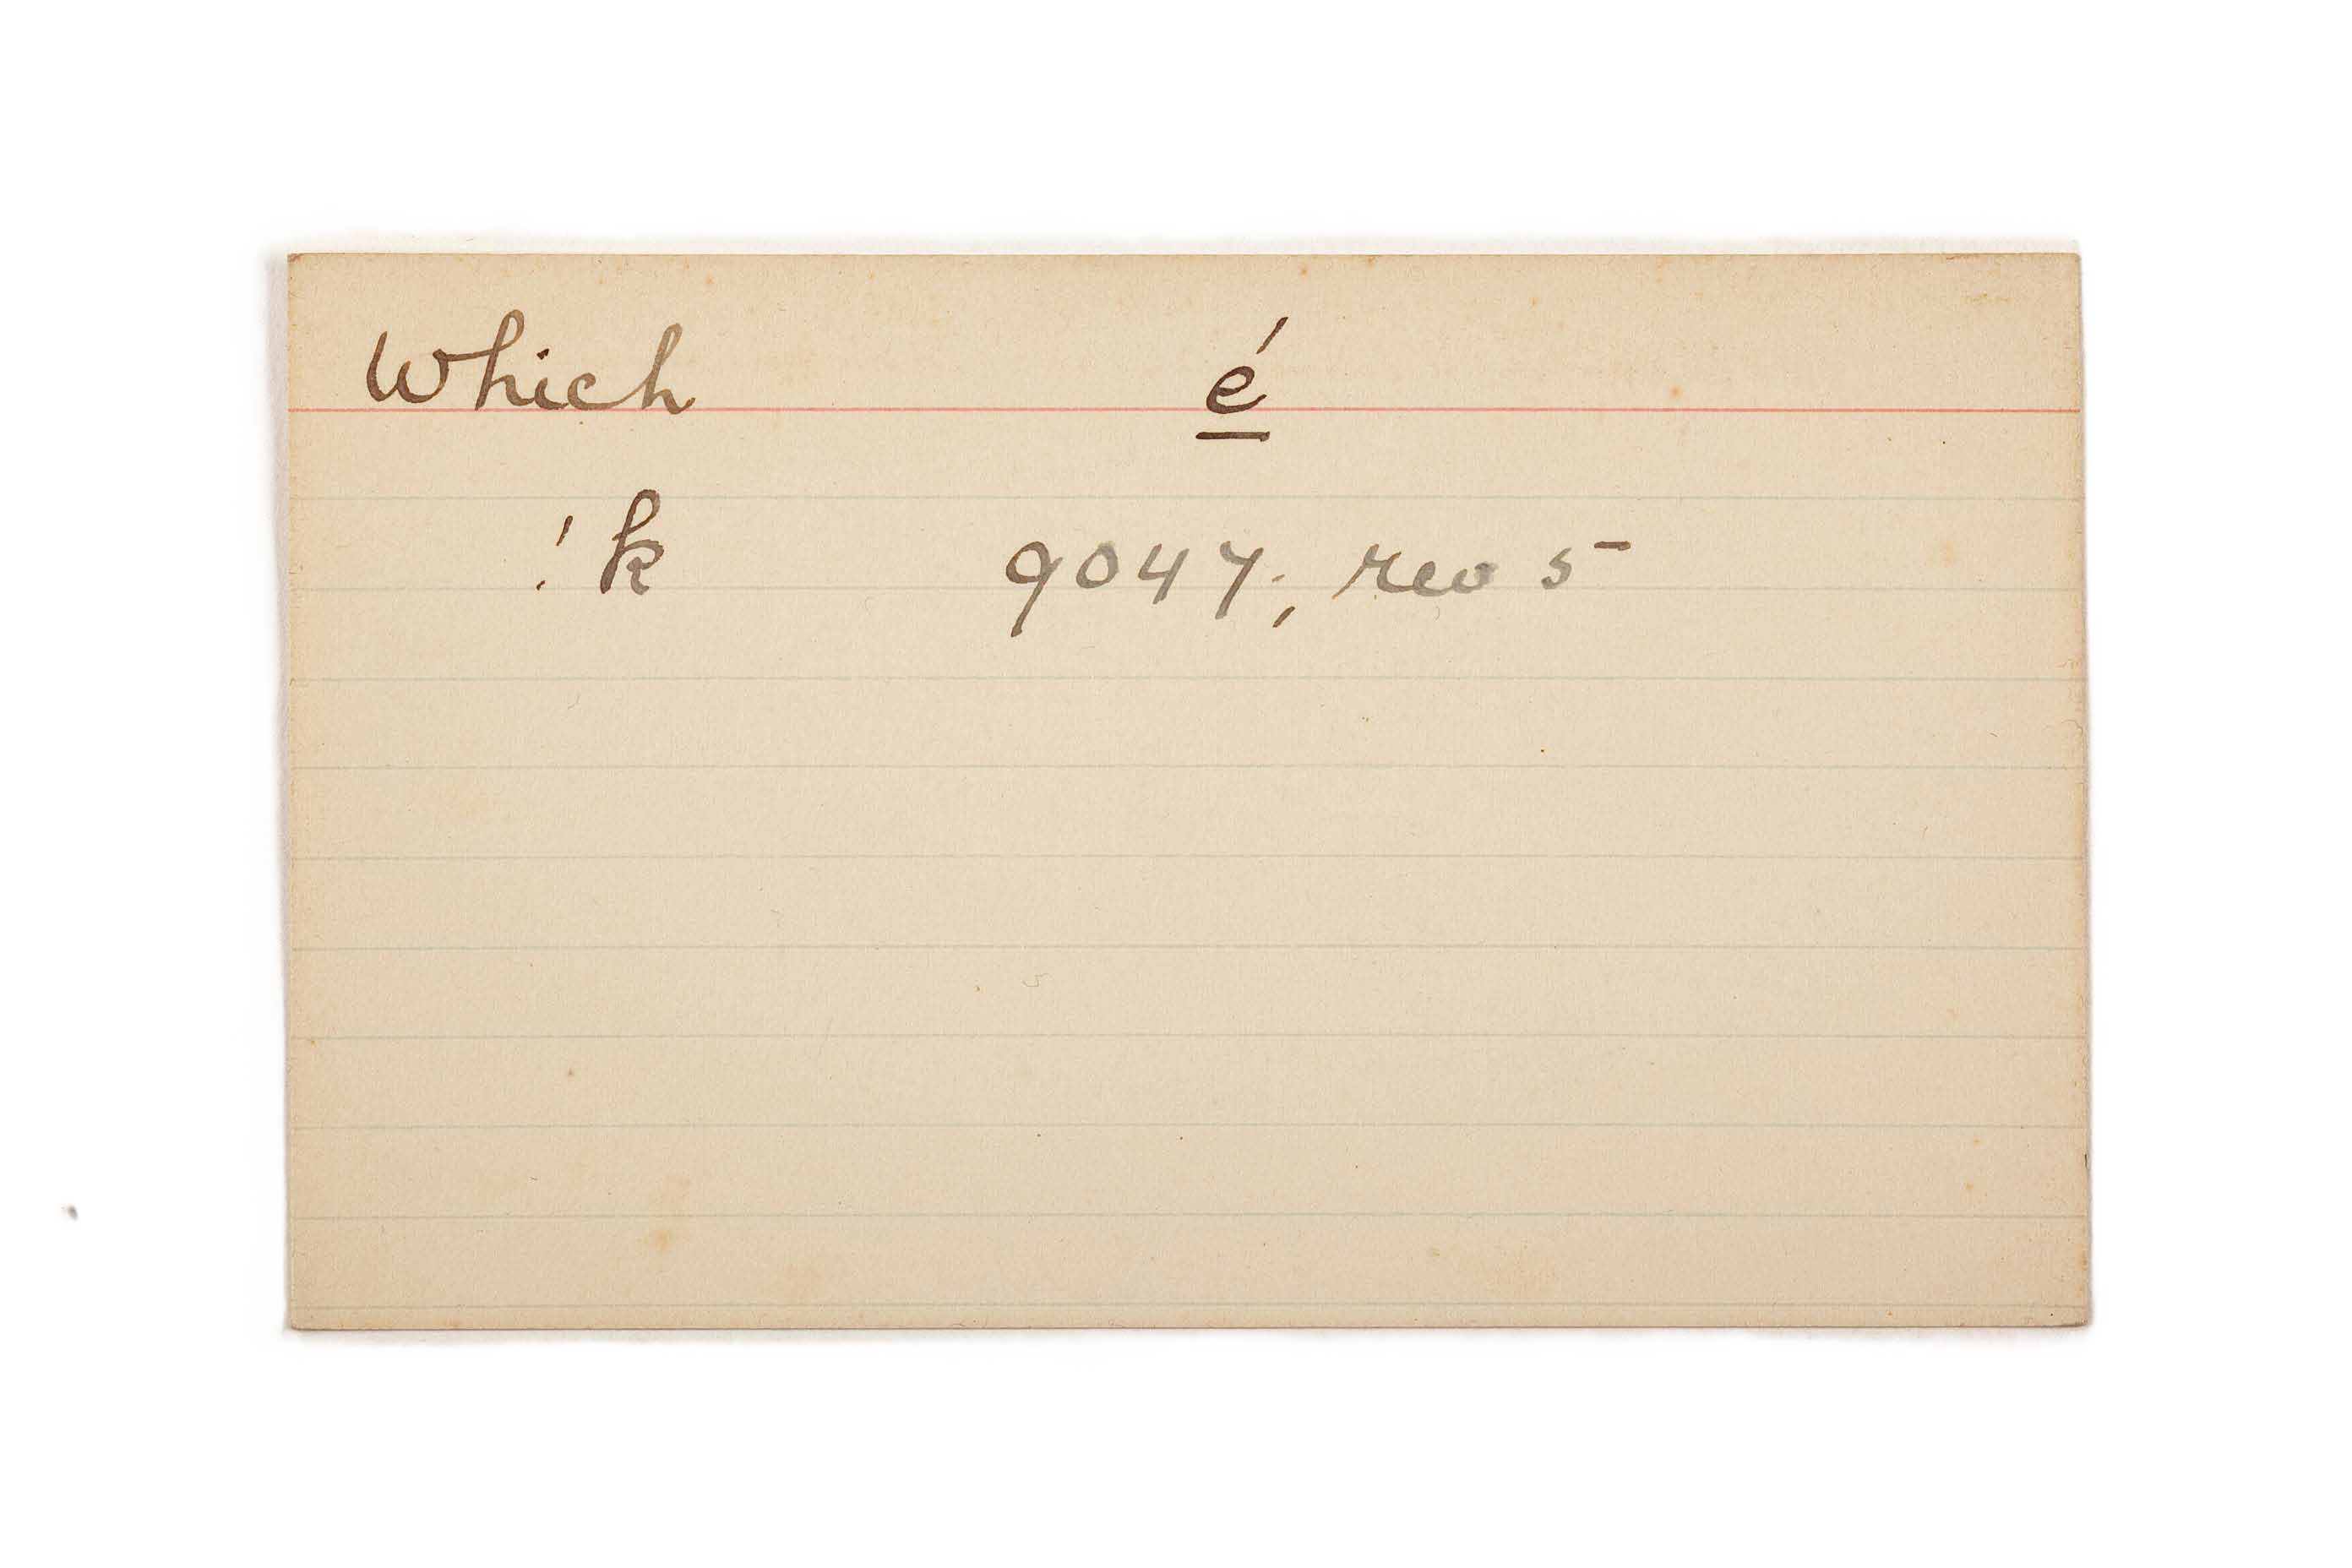 Which é
!k 9047; rev 5